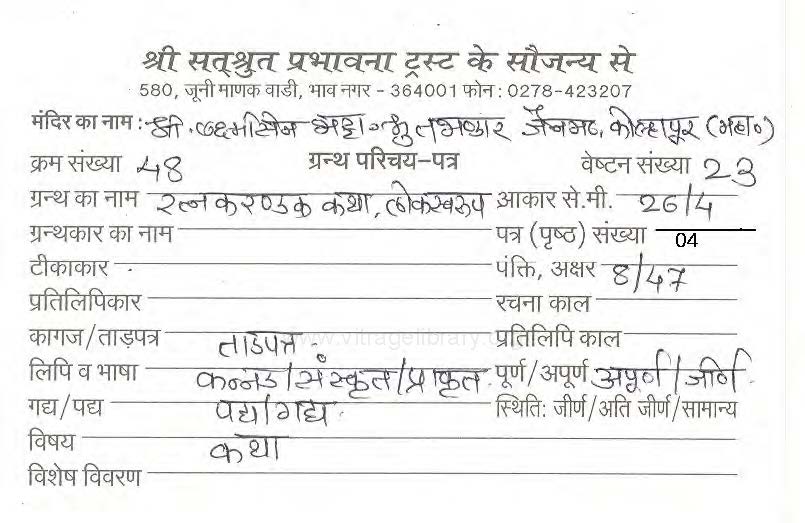 श्री सत्श्रुत प्रभावना ट्रस्ट के सौजन्य से
580, जूनी माणक वाडी, भाव नगर - 364001 फोन : 0278-423207
मंदिर का नाम : श्री. लक्ष्मीसेन भट्टा. जैनमठ, कोल्हापूर (महा॰)
क्रम संख्या 48 ग्रन्थ परिचय-पत्र वेष्टन संख्या 23
ग्रन्थ का नाम रत्नकरण्डक कथा, लोकस्वरूप आकार से.मी. 26/4
ग्रन्थकार का नाम पत्र (पृष्ठ) संख्या 04
टीकाकार पंक्ति, अक्षर 8/47
प्रतिलिपिकार रचना काल
कागज/ताड़पत्र ताडपत्र प्रतिलिपि काल
लिपि व भाषा कन्नड/संस्कृत/प्राकृत पूर्ण/अपूर्ण अपूर्ण/जीर्ण
गद्य/पद्य पद्य/गद्य स्थिति: जीर्ण/अति जीर्ण/सामान्य
विषय कथा
विशेष विवरण